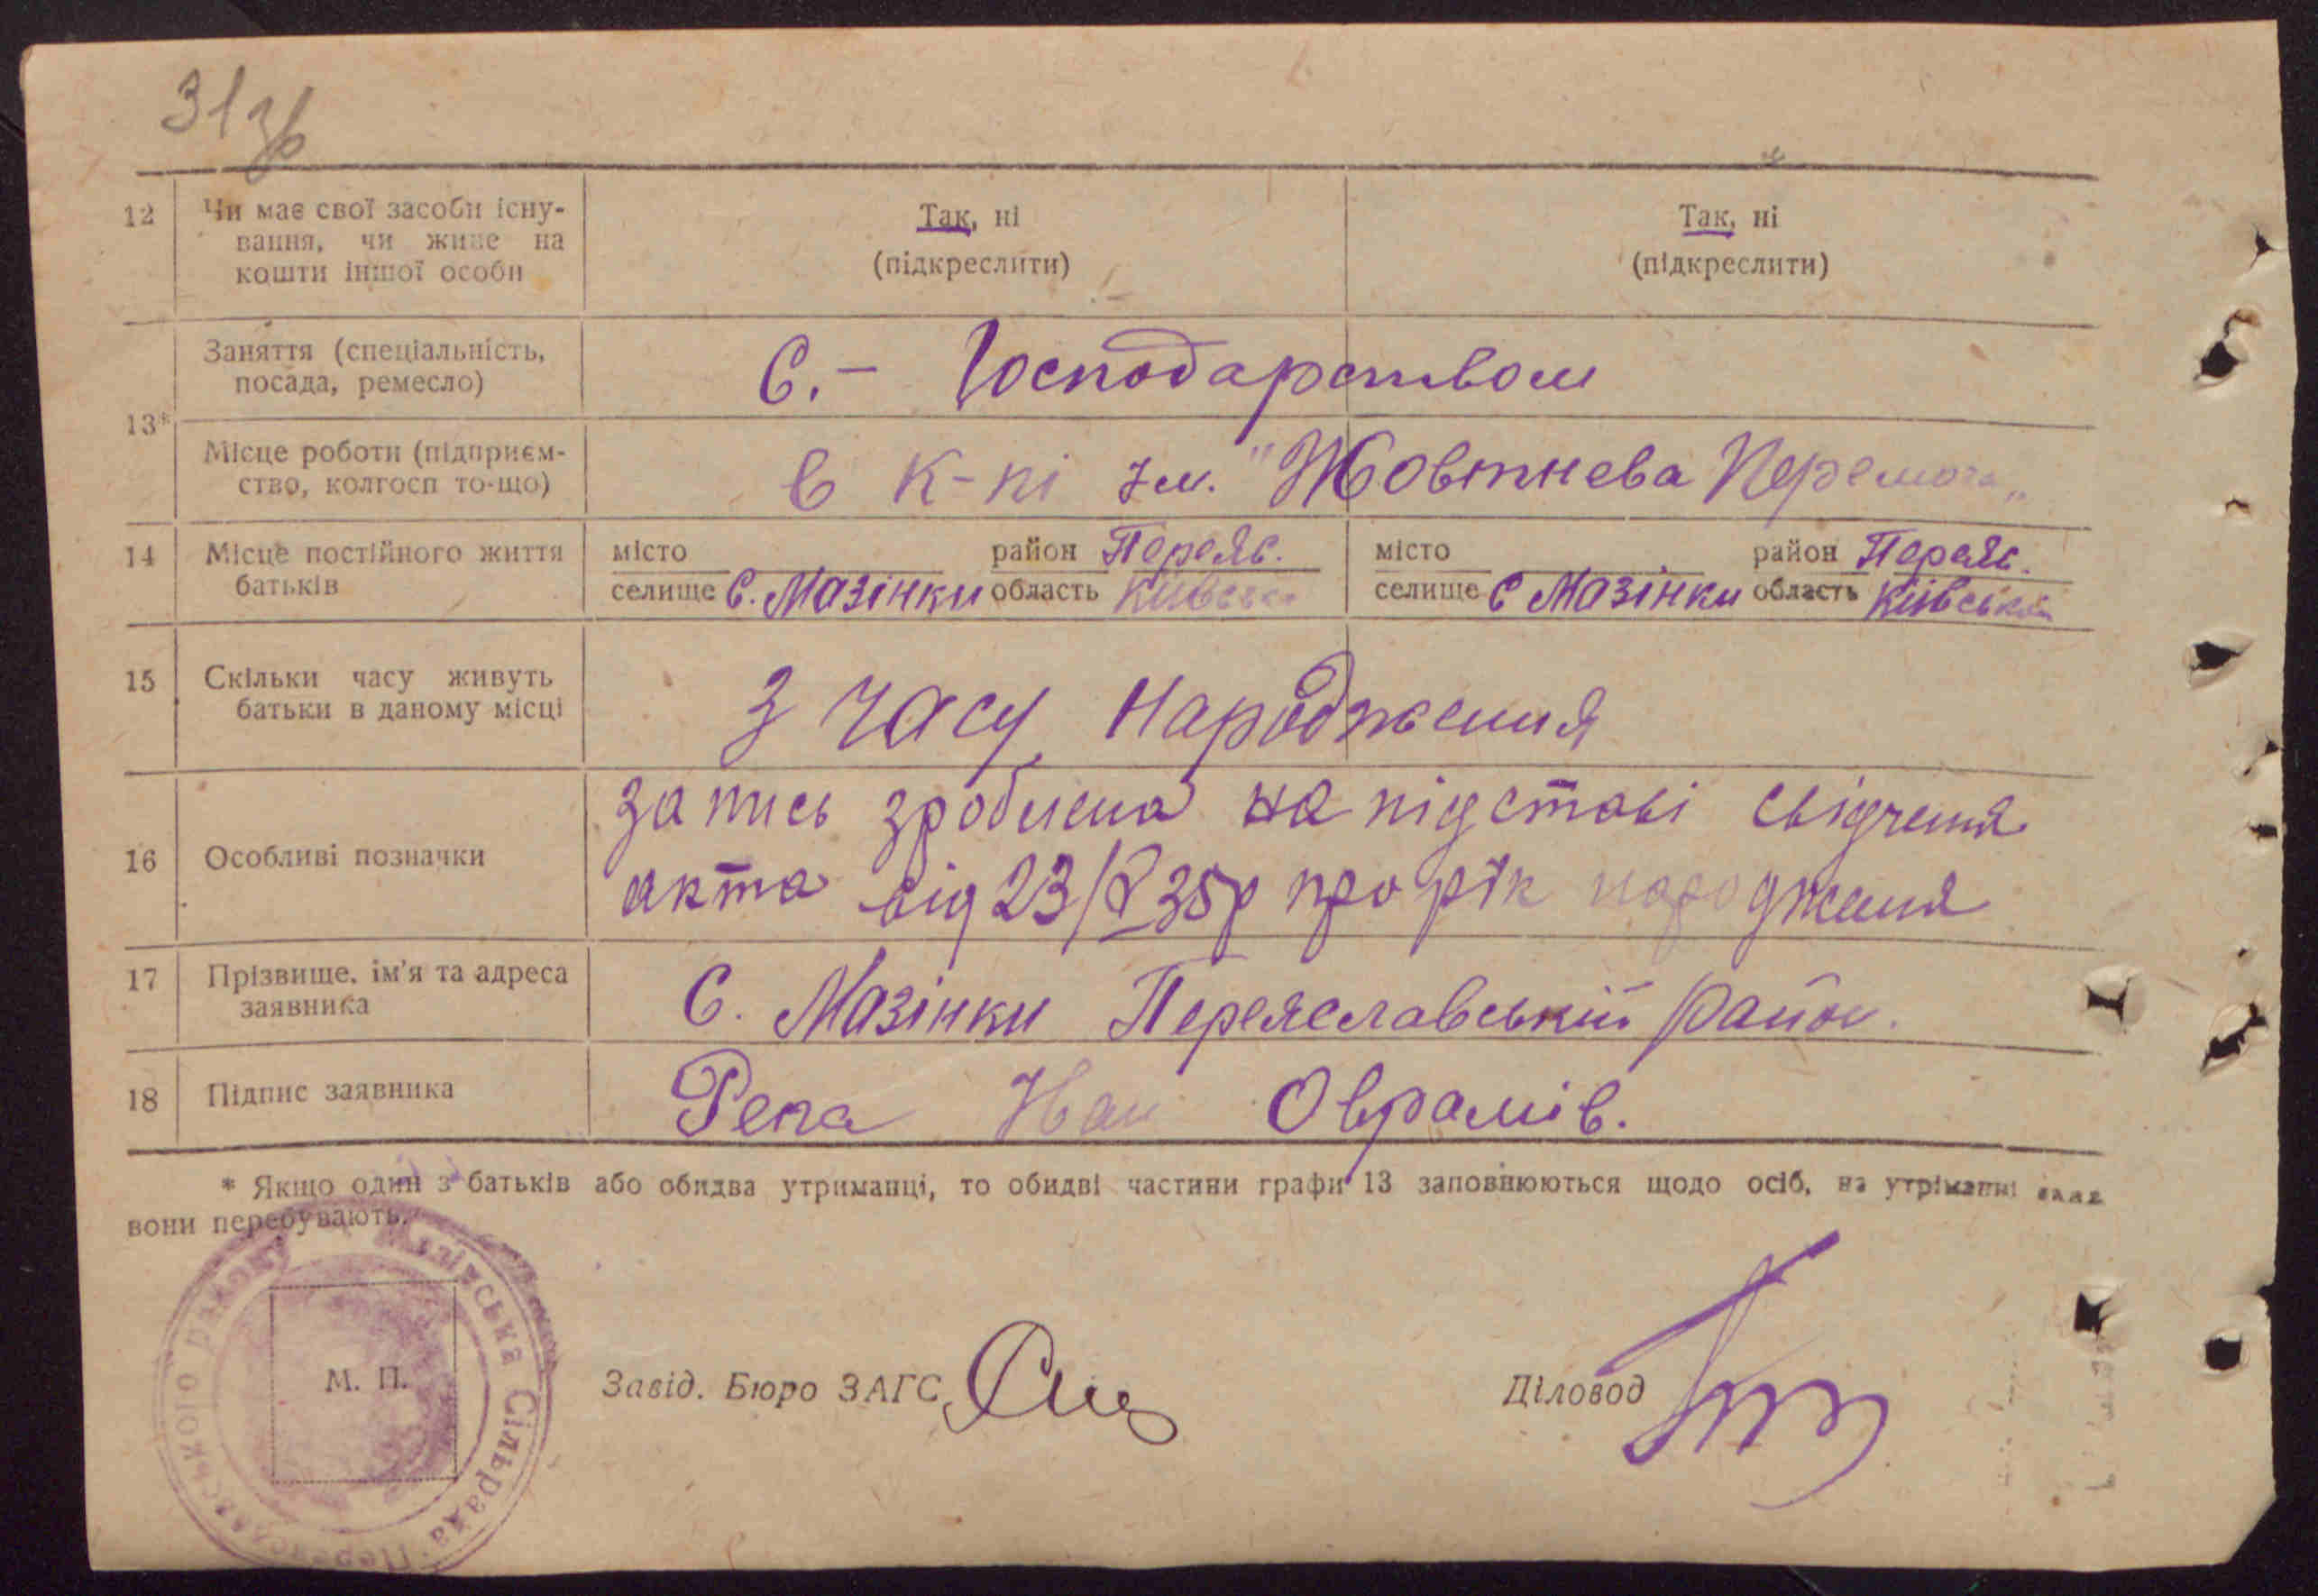 31зв
12 Чи має свої засоби існу-
вання, чи живе на
кошти іншої особи
Так, ні
(підкреслити)
Так, ні
(підкреслити)
13*
Заняття (спеціальність,
посада, ремесло)
С.- Господарством
Місце роботи (підприєм-
ство, колгосп то-що)
в К-пі Ім. "Жовтнева Перемога"
14 Місце постійного життя
батьків
місто район Переяс.
селище С. Мазінки область Київська
місто район Переяс.
селище С Мазінки область Київська
15 Скільки часу живуть
батьки в даному місці
З часу народження
16 Особливі позначки
запись зроблена на підставі свідчення
акта від 23/X 35р про рік народження
17 Прізвище, ім'я та адреса
заявника
С. Мазінки Переяславській район.
18 Підпис заявника
Репа Иван Оврамів.
* Якщо один з батьків або обидва утриманці, то обидві частини графи 13 заповнюються щодо осіб, на утріманні яких
вони перебувають.
Сільрада
М. П.
Завід. Бюро ЗАГС
Діловод